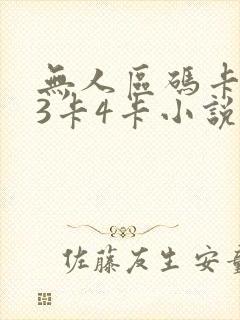 無人區碼卡
3卡4卡小說
佐藤友生 安童